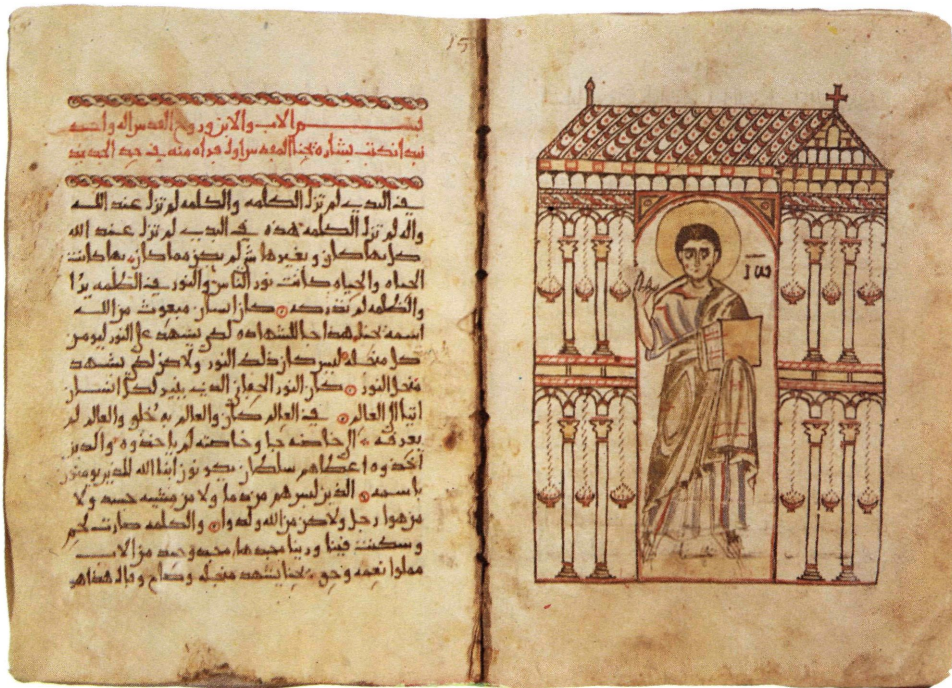 بسم الاب والابن وروح القدس اله واحد
نبدا نكتب بشارة يحنا المقدس اول قراه منه في حد الجديد
في البدي لم تزل الكلمه والكلمه لم تزل عند الله
واله لم تزل الكلمه هذه في البدي لم تزل عند الله
كل بها كان وبغيرها شي لم يكن مما كان بها كانت
الحياه والحياه كانت نور الناس والنور في الظلمه يرا
والظلمه لم تدركه كان انسان مبعوث من الله
اسمه يحنا هذا جا للشهاده لكي يشهد على النور ليومن
كل منقبله ليس كان ذلك النور ولاكن لكي يشهد
منجل النور كان النور الحقاني الذي ينير لكل انسان
اتيا الى العالم في العالم كان والعالم به خلق والعالم لم
يعرفه الى خاصته جا وخاصته لم ياخذوه والذين
اخذوه اعطاهم سلطان يكونون ابنا الله للذين يومنون
باسمه الذين ليس هم من دما ولا من مشيه جسد ولا
من هوا رجل ولاكن من الله ولدوا والكلمه صارت لحم
وسكنت فينا وراينا مجدها مجد وحيد من الاب
مملوا نعمه وحق يحنا يشهد منجله وصاح وقال هذا هو
ΙΩ